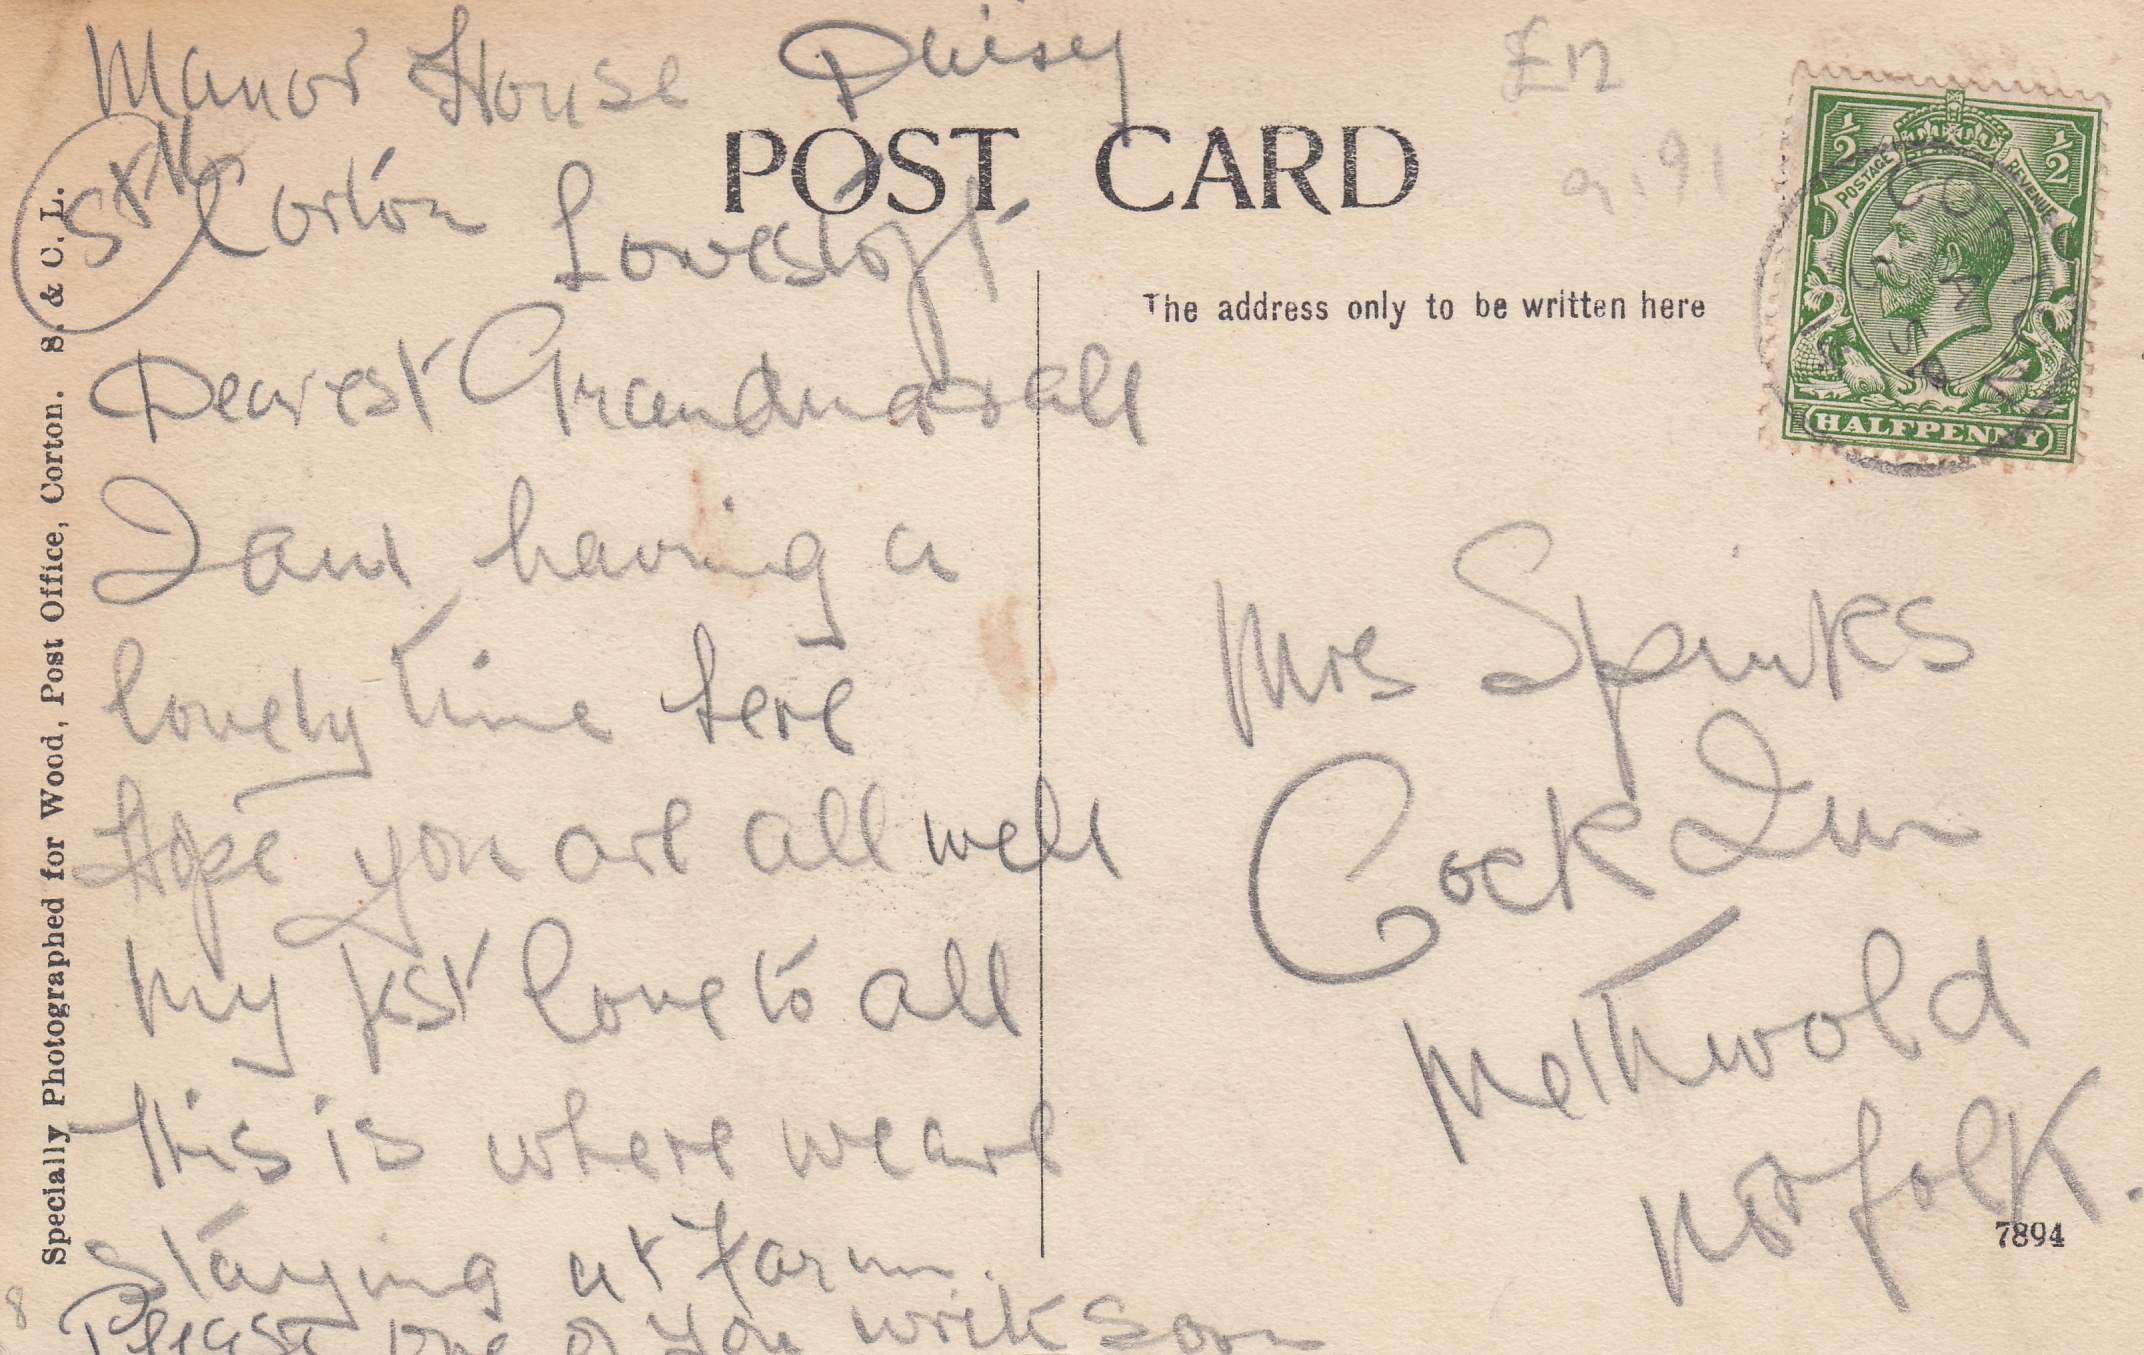 Manor House Daisy
Corton Lowestoft
Dearest Grandma & all
I am having a
lovely time here
Hope you are all well
my best love to all
this is where we are
staying at Farm.
Please one of you write soon
POST CARD
The address only to be written here
£12
½ ½
POSTAGE REVENUE
HALFPENNY
Mrs Spinks
Cock Inn
Methwold
Norfolk.
7894
Specially Photographed for Wood, Post Office, Corton. S. & C. L.
8